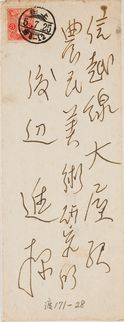 信越線大屋駅
農民美術研究所
渡辺進様
渡171-28